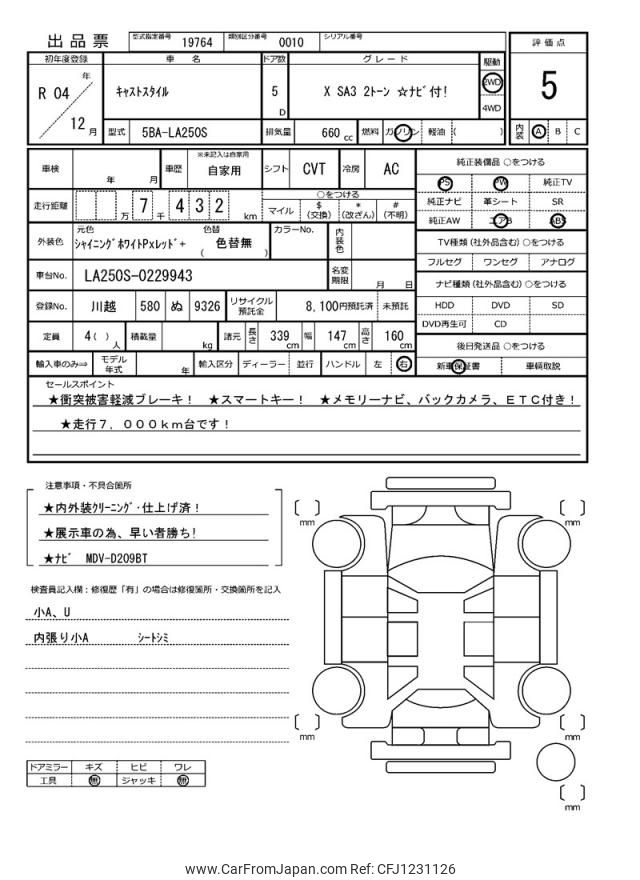 出品票 型式指定番号 19764 類別区分番号 0010 シリアル番号
評価点
5
内装 A B C
初年度登録 車名 ドア数 グレード 駆動
R 04 年 12 月
キャストスタイル 5 D X SA3 2トーン ☆ナビ付! 2WD 4WD
型式 5BA-LA250S 排気量 660 cc 燃料 ガソリン 軽油 ( )
車検 年 月 車歴 ※未記入は自家用 自家用 シフト CVT 冷房 AC
走行距離 万 7 千 4 3 2 km ○をつける
マイル $ (交換) * (改ざん) # (不明)
外装色 元色 シャイニングホワイトPxレッド+ 色替 ( 色替無 ) カラーNo. 内装色
車台No. LA250S-0229943 名変期限 月 日
登録No. 川越 580 ぬ 9326 リサイクル預託金 8,100円預託済 未預託
定員 4( )人 積載量 kg 諸元 長さ 339cm 幅 147cm 高さ 160cm
輸入車のみ⇒ モデル年式 年 輸入区分 ディーラー 並行 ハンドル 左 右
純正装備品 ○をつける
PS PW 純正TV
純正ナビ 革シート SR
純正AW エアB ABS
TV種類 (社外品含む) ○をつける
フルセグ ワンセグ アナログ
ナビ種類 (社外品含む) ○をつける
HDD DVD SD
DVD再生可 CD
後日発送品 ○をつける
新車保証書 車輌取説
セールスポイント
★衝突被害軽減ブレーキ! ★スマートキー! ★メモリーナビ、バックカメラ、ETC付き!
★走行7,000km台です!
注意事項・不具合箇所
★内外装クリーニング・仕上げ済!
★展示車の為、早い者勝ち!
★ナビ MDV-D209BT
検査員記入欄:修復歴「有」の場合は修復箇所・交換箇所を記入
小A、U
内張り小A シートシミ
ドアミラー キズ ヒビ ワレ
工具 無 ジャッキ 無
mm
mm
mm
mm
mm
www.CarFromJapan.com Ref: CFJ1231126